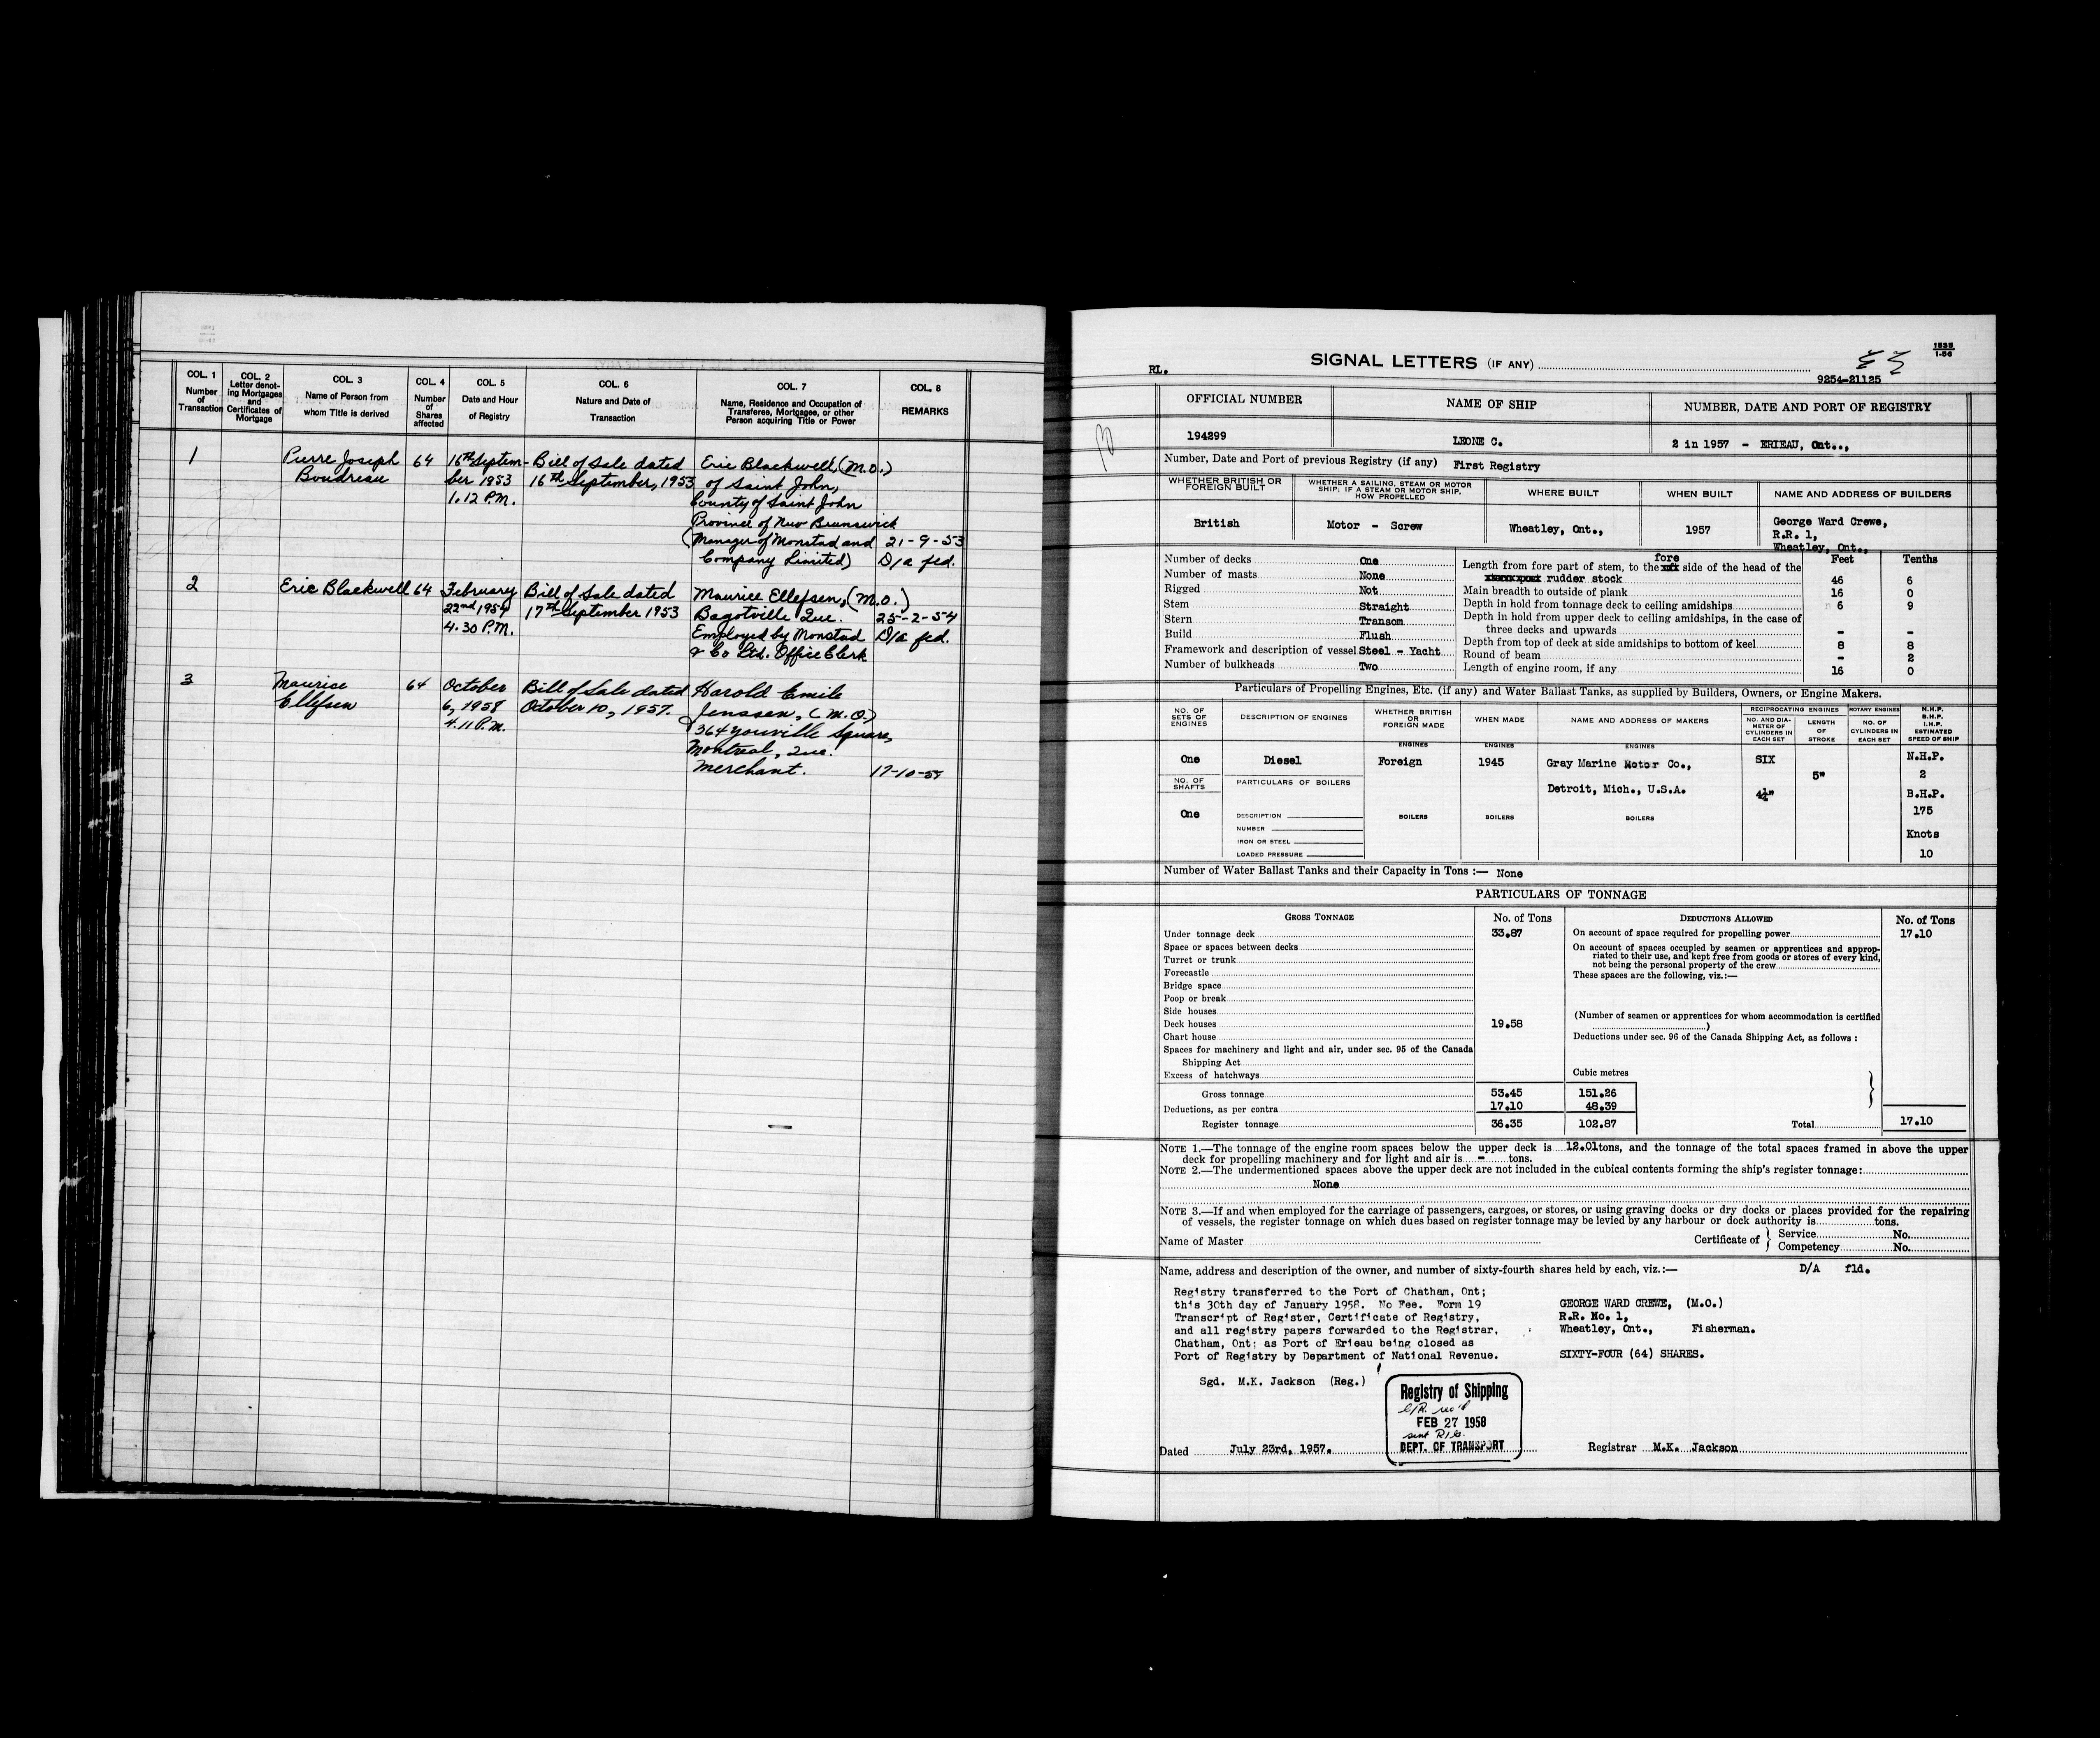 COL. 1
Number
of
Transaction
COL. 2
Letter denot-
ing Mortgages
and
Certificates of
Mortgage
COL. 3
Name of Person from
whom Title is derived
COL. 4
Number
of
Shares
affected
COL. 5
Date and Hour
of Registry
COL. 6
Nature and Date of
Transaction
COL. 7
Name, Residence and Occupation of
Transferee, Mortgagee, or other
Person acquiring Title or Power
COL. 8
REMARKS
1 Pierre Joseph 64 16th Septem- Bill of Sale dated Eric Blackwell, (M.O.)
Boudreau ber 1953 16th September, 1953 of Saint John,
1.12 P.M. County of Saint John
Province of New Brunswick
(Manager of Monstad and 21-9-53
Company Limited) D/a fed.
2 Eric Blackwell 64 February Bill of Sale dated Maurice Ellefsen, (M.O.)
22nd 1954 17th September 1953 Bagotville Que. 25-2-54
4.30 P.M. Employed by Monstad D/a fed.
& Co Ltd. Office Clerk
3 Maurice 64 October Bill of Sale dated Harold Emile
Ellefsen 6, 1958 October 10, 1957. Jenssen, (M.O.)
4.11 P.M. 364 Youville Square,
Montreal, Que.
Merchant. 17-10-58
1535
1-56
RL.
SIGNAL LETTERS (IF ANY)
9254-21125
OFFICIAL NUMBER NAME OF SHIP NUMBER, DATE AND PORT OF REGISTRY
194299 LEONE C. 2 in 1957 - ERIEAU, Ont..,
Number, Date and Port of previous Registry (if any) First Registry
WHETHER BRITISH OR
FOREIGN BUILT
WHETHER A SAILING, STEAM OR MOTOR
SHIP; IF A STEAM OR MOTOR SHIP,
HOW PROPELLED
WHERE BUILT
WHEN BUILT
NAME AND ADDRESS OF BUILDERS
British Motor - Screw Wheatley, Ont., 1957
George Ward Crewe,
R.R. 1,
Wheatley, Ont.,
Number of decks One
Number of masts None
Rigged Not
Stem Straight
Stern Transom
Build Flush
Framework and description of vessel Steel - Yacht
Number of bulkheads Two
Feet Tenths
fore
Length from fore part of stem, to the side of the head of the
rudder stock 46 6
Main breadth to outside of plank 16 0
Depth in hold from tonnage deck to ceiling amidships 6 9
Depth in hold from upper deck to ceiling amidships, in the case of
three decks and upwards - -
Depth from top of deck at side amidships to bottom of keel 8 8
Round of beam - 2
Length of engine room, if any 16 0
Particulars of Propelling Engines, Etc. (if any) and Water Ballast Tanks, as supplied by Builders, Owners, or Engine Makers.
NO. OF
SETS OF
ENGINES
DESCRIPTION OF ENGINES
WHETHER BRITISH
OR
FOREIGN MADE
WHEN MADE
NAME AND ADDRESS OF MAKERS
RECIPROCATING ENGINES
NO. AND DIA-
METER OF
CYLINDERS IN
EACH SET
LENGTH
OF
STROKE
ROTARY ENGINES
NO. OF
CYLINDERS IN
EACH SET
N.H.P.
B.H.P.
I.H.P.
ESTIMATED
SPEED OF SHIP
ENGINES ENGINES ENGINES
One Diesel Foreign 1945 Gray Marine Motor Co., SIX N.H.P.
5" 2
NO. OF
SHAFTS
PARTICULARS OF BOILERS
Detroit, Mich., U.S.A. 4¼" B.H.P.
175
One
DESCRIPTION BOILERS BOILERS BOILERS
NUMBER Knots
IRON OR STEEL
LOADED PRESSURE 10
Number of Water Ballast Tanks and their Capacity in Tons :— None
PARTICULARS OF TONNAGE
GROSS TONNAGE No. of Tons DEDUCTIONS ALLOWED No. of Tons
Under tonnage deck 33.87
Space or spaces between decks
Turret or trunk
Forecastle
Bridge space
Poop or break
Side houses
Deck houses 19.58
Chart house
Spaces for machinery and light and air, under sec. 95 of the Canada
Shipping Act
Excess of hatchways
On account of space required for propelling power 17.10
On account of spaces occupied by seamen or apprentices and approp-
riated to their use, and kept free from goods or stores of every kind,
not being the personal property of the crew
These spaces are the following, viz.:—
(Number of seamen or apprentices for whom accommodation is certified
)
Deductions under sec. 96 of the Canada Shipping Act, as follows :
Cubic metres
Gross tonnage 53.45 151.26
Deductions, as per contra 17.10 48.39
Register tonnage 36.35 102.87 Total 17.10
NOTE 1.—The tonnage of the engine room spaces below the upper deck is 12.01 tons, and the tonnage of the total spaces framed in above the upper
deck for propelling machinery and for light and air is - tons.
NOTE 2.—The undermentioned spaces above the upper deck are not included in the cubical contents forming the ship's register tonnage:
None
NOTE 3.—If and when employed for the carriage of passengers, cargoes, or stores, or using graving docks or dry docks or places provided for the repairing
of vessels, the register tonnage on which dues based on register tonnage may be levied by any harbour or dock authority is tons.
Name of Master Certificate of Service No.
Competency No.
Name, address and description of the owner, and number of sixty-fourth shares held by each, viz.:— D/A fld.
Registry transferred to the Port of Chatham, Ont;
this 30th day of January 1958. No Fee. Form 19
Transcript of Register, Certificate of Registry,
and all registry papers forwarded to the Registrar,
Chatham, Ont; as Port of Erieau being closed as
Port of Registry by Department of National Revenue.
Sgd. M.K. Jackson (Reg.)
GEORGE WARD CREWE, (M.O.)
R.R. No. 1,
Wheatley, Ont., Fisherman.
SIXTY-FOUR (64) SHARES.
Registry of Shipping
FEB 27 1958
DEPT. OF TRANSPORT
Dated July 23rd, 1957. Registrar M.K. Jackson